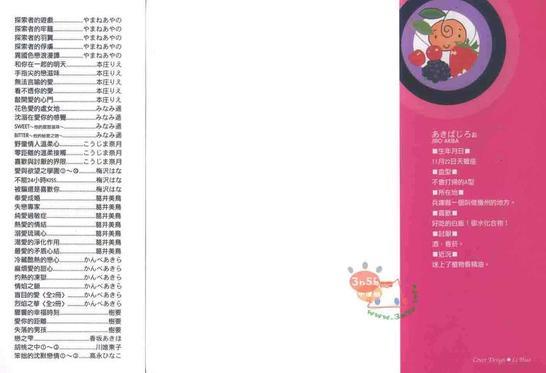 探索者的遊戲……やまねあやの
探索者的牢籠……やまねあやの
探索者的羽翼……やまねあやの
探索者的俘虜……やまねあやの
異國色戀浪漫譚……やまねあやの
和你在一起的明天……本庄りえ
手指尖的戀滋味……本庄りえ
無法言喻的愛……本庄りえ
看不透你的愛……本庄りえ
敲開愛的心門……本庄りえ
花色愛的處女地……みなみ遥
沈溺在愛你的感覺……みなみ遥
SWEET……みなみ遥
BITTER……みなみ遥
野蠻情人溫柔心……こうじま奈月
零距離的溫柔接觸……こうじま奈月
喜歡與討厭的界限……こうじま奈月
愛與欲望之學園①~⑥……梅沢はな
不能24小時KISS……梅沢はな
被騙還是喜歡你……梅沢はな
奉愛成婚……葛井美鳥
失戀專家……葛井美鳥
純愛過敏症……葛井美鳥
熱愛的情結……葛井美鳥
溺愛琉璃心……葛井美鳥
濁愛的淨化作用……葛井美鳥
最愛的矛盾心結……葛井美鳥
冷藏酷熱的戀心……かんべあきら
麻煩愛的甜心……かんべあきら
灼熱的凍獄……かんべあきら
情焰之鎖……かんべあきら
盲目的愛〈全2冊〉……かんべあきら
烈焰之華〈全2冊〉……かんべあきら
響響的幸福時刻……樹要
愛你的距離……樹要
失落的男孩……樹要
戀之雫……香坂あきほ
胡桃之中①~③……川唯東子
笨拙的沈默戀情①~③……高永ひなこ
あきばじろぉ
JIRO AKIBA
■生年月日■
11月22日天蠍座
■血型■
不會打掃的A型
■所在地■
兵庫縣一個叫做播州的地方。
■喜歡■
好吃的白飯！碳水化合物！
■討厭■
酒、香菸。
■近況■
迷上了植物香精油。
www.3n5b.net
Cover Design●Li Hua